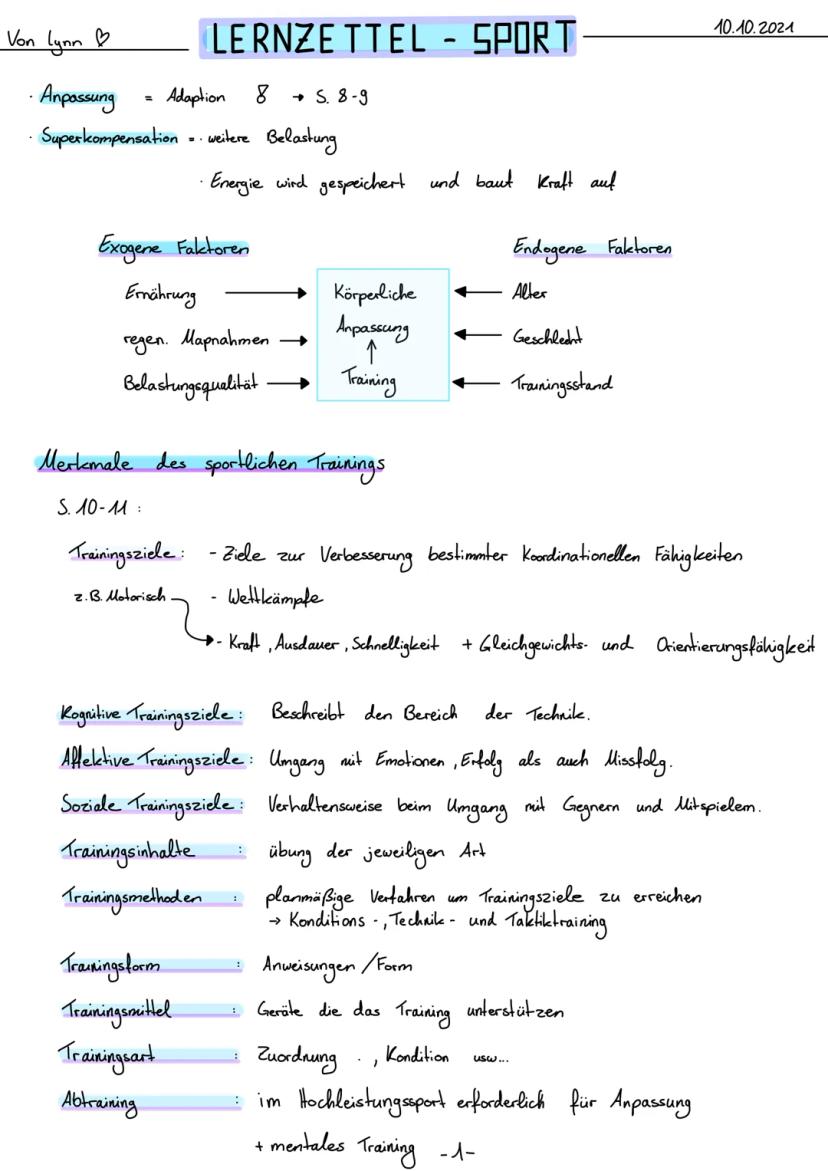 Von Lynn ♡
LERNZETTEL - SPORT
10.10.2021
· Anpassung = Adaption 8 → S. 8-9
· Superkompensation = · weitere Belastung
· Energie wird gespeichert und baut Kraft auf
Exogene Faktoren
Endogene Faktoren
Ernährung → Körperliche ← Alter
regen. Mapnahmen → Anpassung ← Geschlecht
↑
Belastungsqualität → Training ← Trainingsstand
Merkmale des sportlichen Trainings
S. 10-11 :
Trainingsziele : - Ziele zur Verbesserung bestimmter Koordinationellen Fähigkeiten
z.B. Motorisch - Wettkämpfe
→ - Kraft, Ausdauer, Schnelligkeit + Gleichgewichts- und Orientierungsfähigkeit
Kognitive Trainingsziele : Beschreibt den Bereich der Technik.
Affektive Trainingsziele : Umgang mit Emotionen, Erfolg als auch Missfolg.
Soziale Trainingsziele : Verhaltensweise beim Umgang mit Gegnern und Mitspielern.
Trainingsinhalte : übung der jeweiligen Art
Trainingsmethoden : planmäßige Verfahren um Trainingsziele zu erreichen
→ Konditions-, Technik- und Taktiktraining
Trainingsform : Anweisungen / Form
Trainingsmittel : Geräte die das Training unterstützen
Trainingsart : Zuordnung . , Kondition usw...
Abtraining : im Hochleistungssport erforderlich für Anpassung
+ mentales Training -1-